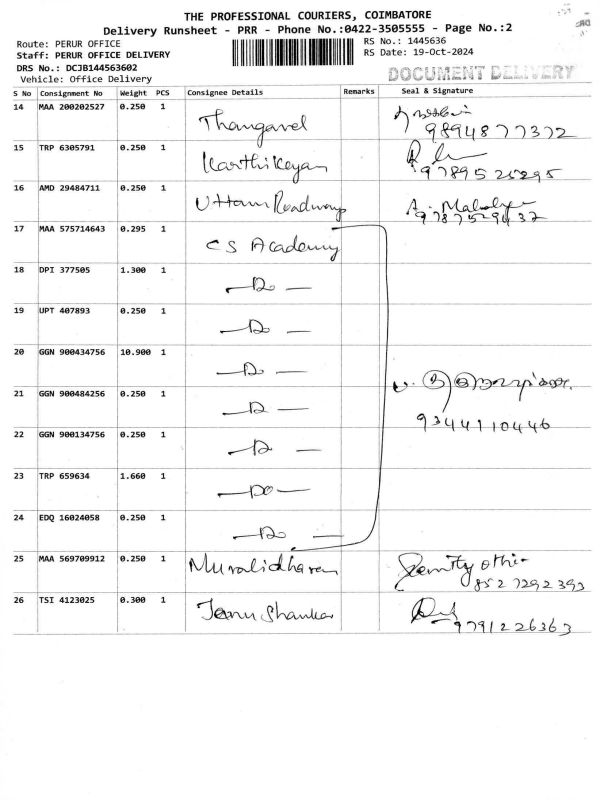 THE PROFESSIONAL COURIERS, COIMBATORE
Delivery Runsheet - PRR - Phone No.:0422-3505555 - Page No.:2
Route: PERUR OFFICE RS No.: 1445636
Staff: PERUR OFFICE DELIVERY RS Date: 19-Oct-2024
DRS No.: DCJB144563602
Vehicle: Office Delivery DOCUMENT DELIVERY
S No Consignment No Weight PCS Consignee Details Remarks Seal & Signature
14 MAA 200202527 0.250 1 Thangavel
9894877372
15 TRP 6305791 0.250 1 Karthikeyan
9789525295
16 AMD 29484711 0.250 1 Uttam Roadways
17 MAA 575714643 0.295 1 CS Academy
18 DPI 377505 1.300 1 -Do-
19 UPT 407893 0.250 1 -Do-
20 GGN 900434756 10.900 1 -Do-
21 GGN 900484256 0.250 1 -Do-
9344110446
22 GGN 900134756 0.250 1 -Do-
23 TRP 659634 1.660 1 -Do-
24 EDQ 16024058 0.250 1 -Do-
25 MAA 569709912 0.250 1 Muralidharan
8527292393
26 TSI 4123025 0.300 1 Shankar
9791226363